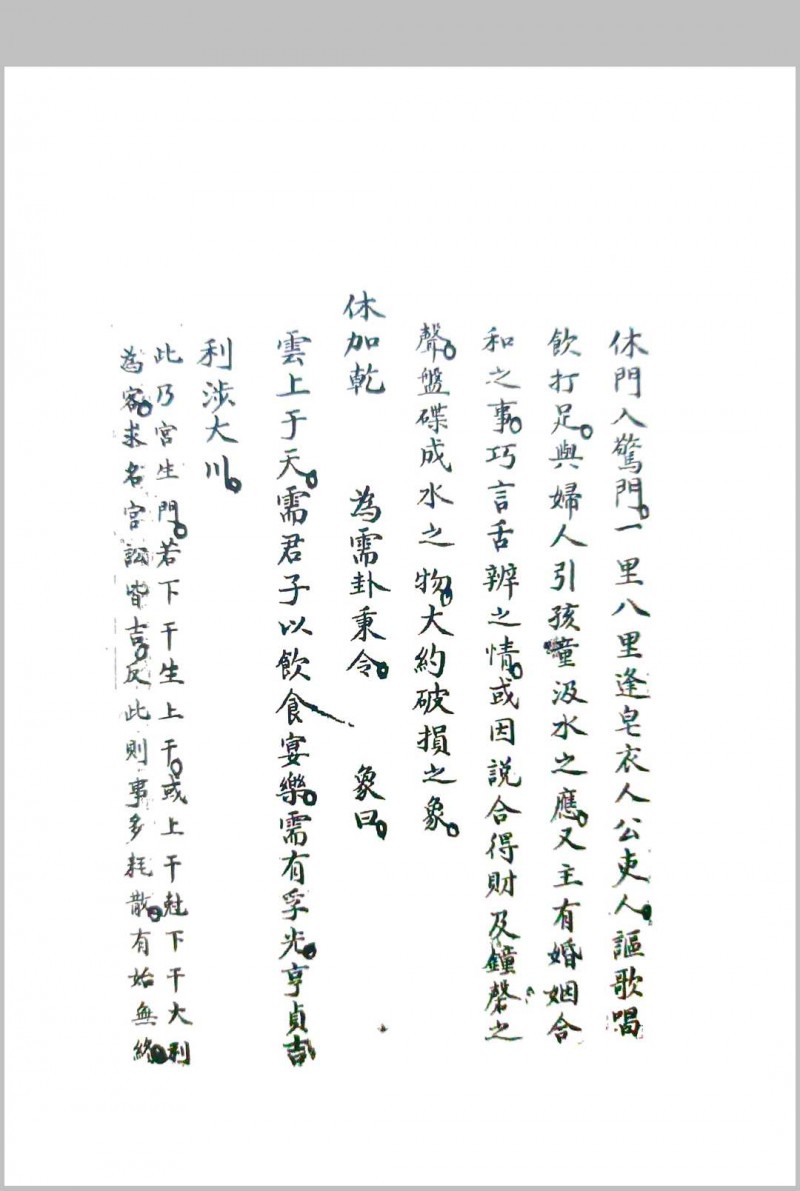 休門入驚門。一里八里逢皂衣人公吏人。謳歌唱
飲打足。與婦人引孩童汲水之應。又主有婚姻合
和之事。巧言舌辨之情。或因説合得財及鐘磬之
聲。盤碟成水之物。大約破損之象。
休加乾　為需卦秉令。　象曰。
雲上于天。需君子以飲食宴樂。需有孚光。亨貞吉
利涉大川。
此乃宮生門。若下干生上干。或上干尅下干大利
為客。求名官訟皆吉。反此則事多耗散。有始無終。